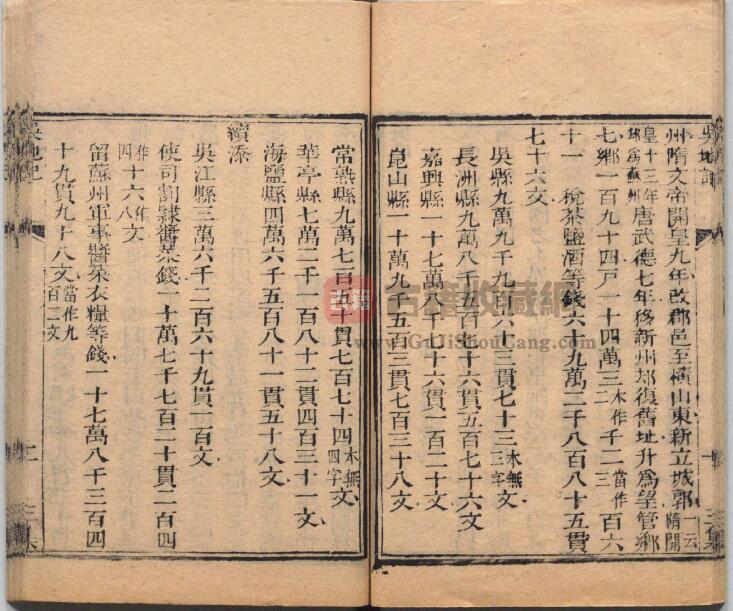 州隋文帝開皇九年改郡邑至橫山東新立城郭一云隋開
皇十三年邾爲蘇州唐武德七年移新州却復舊址升爲望管鄉
七鄉一百九十四戶一十四萬三一本作二千二當作三百六
十一稅茶鹽酒等錢六十九萬二千八百八十五貫
七十六文
吳縣九萬九千九百六十三貫七十三本無三字文
長洲縣九萬八千五百七十六貫五百七十六文
嘉興縣一十七萬八千七十六貫一百二十文
崑山縣一十萬九千五百三貫七百三十八文
常熟縣九萬七百五十貫七百七十四本無四字文
華亭縣七萬二千一百八十二貫四百三十一文
海鹽縣四萬六千五百八十一貫五十八文
續添
吳江縣三萬六千二百六十九貫一百文
使司割隸醬菜錢一十萬七千七百二十貫二百四
作四十六作八文
留蘇州軍事醬菜衣糧等錢一十七萬八千三百四
十九貫九十八文當作九百二文
吳地記
十一
三集
古籍收藏網
www.GuJiShouCang.com